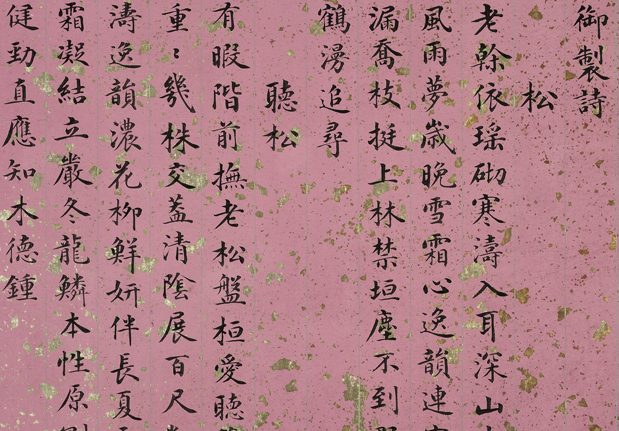 御製詩
松
老幹依瑶砌寒濤入耳深山
風雨夢歲晚雪霜心逸韻連
漏喬枝挺上林禁垣塵不到
鶴漫追尋
聽松
有暇階前撫老松盤桓愛聽
重〻幾株交蓋清陰展百尺
濤逸韻濃花柳鮮妍伴長夏
霜凝結立嚴冬龍鱗本性原
健勁直應知木德鍾